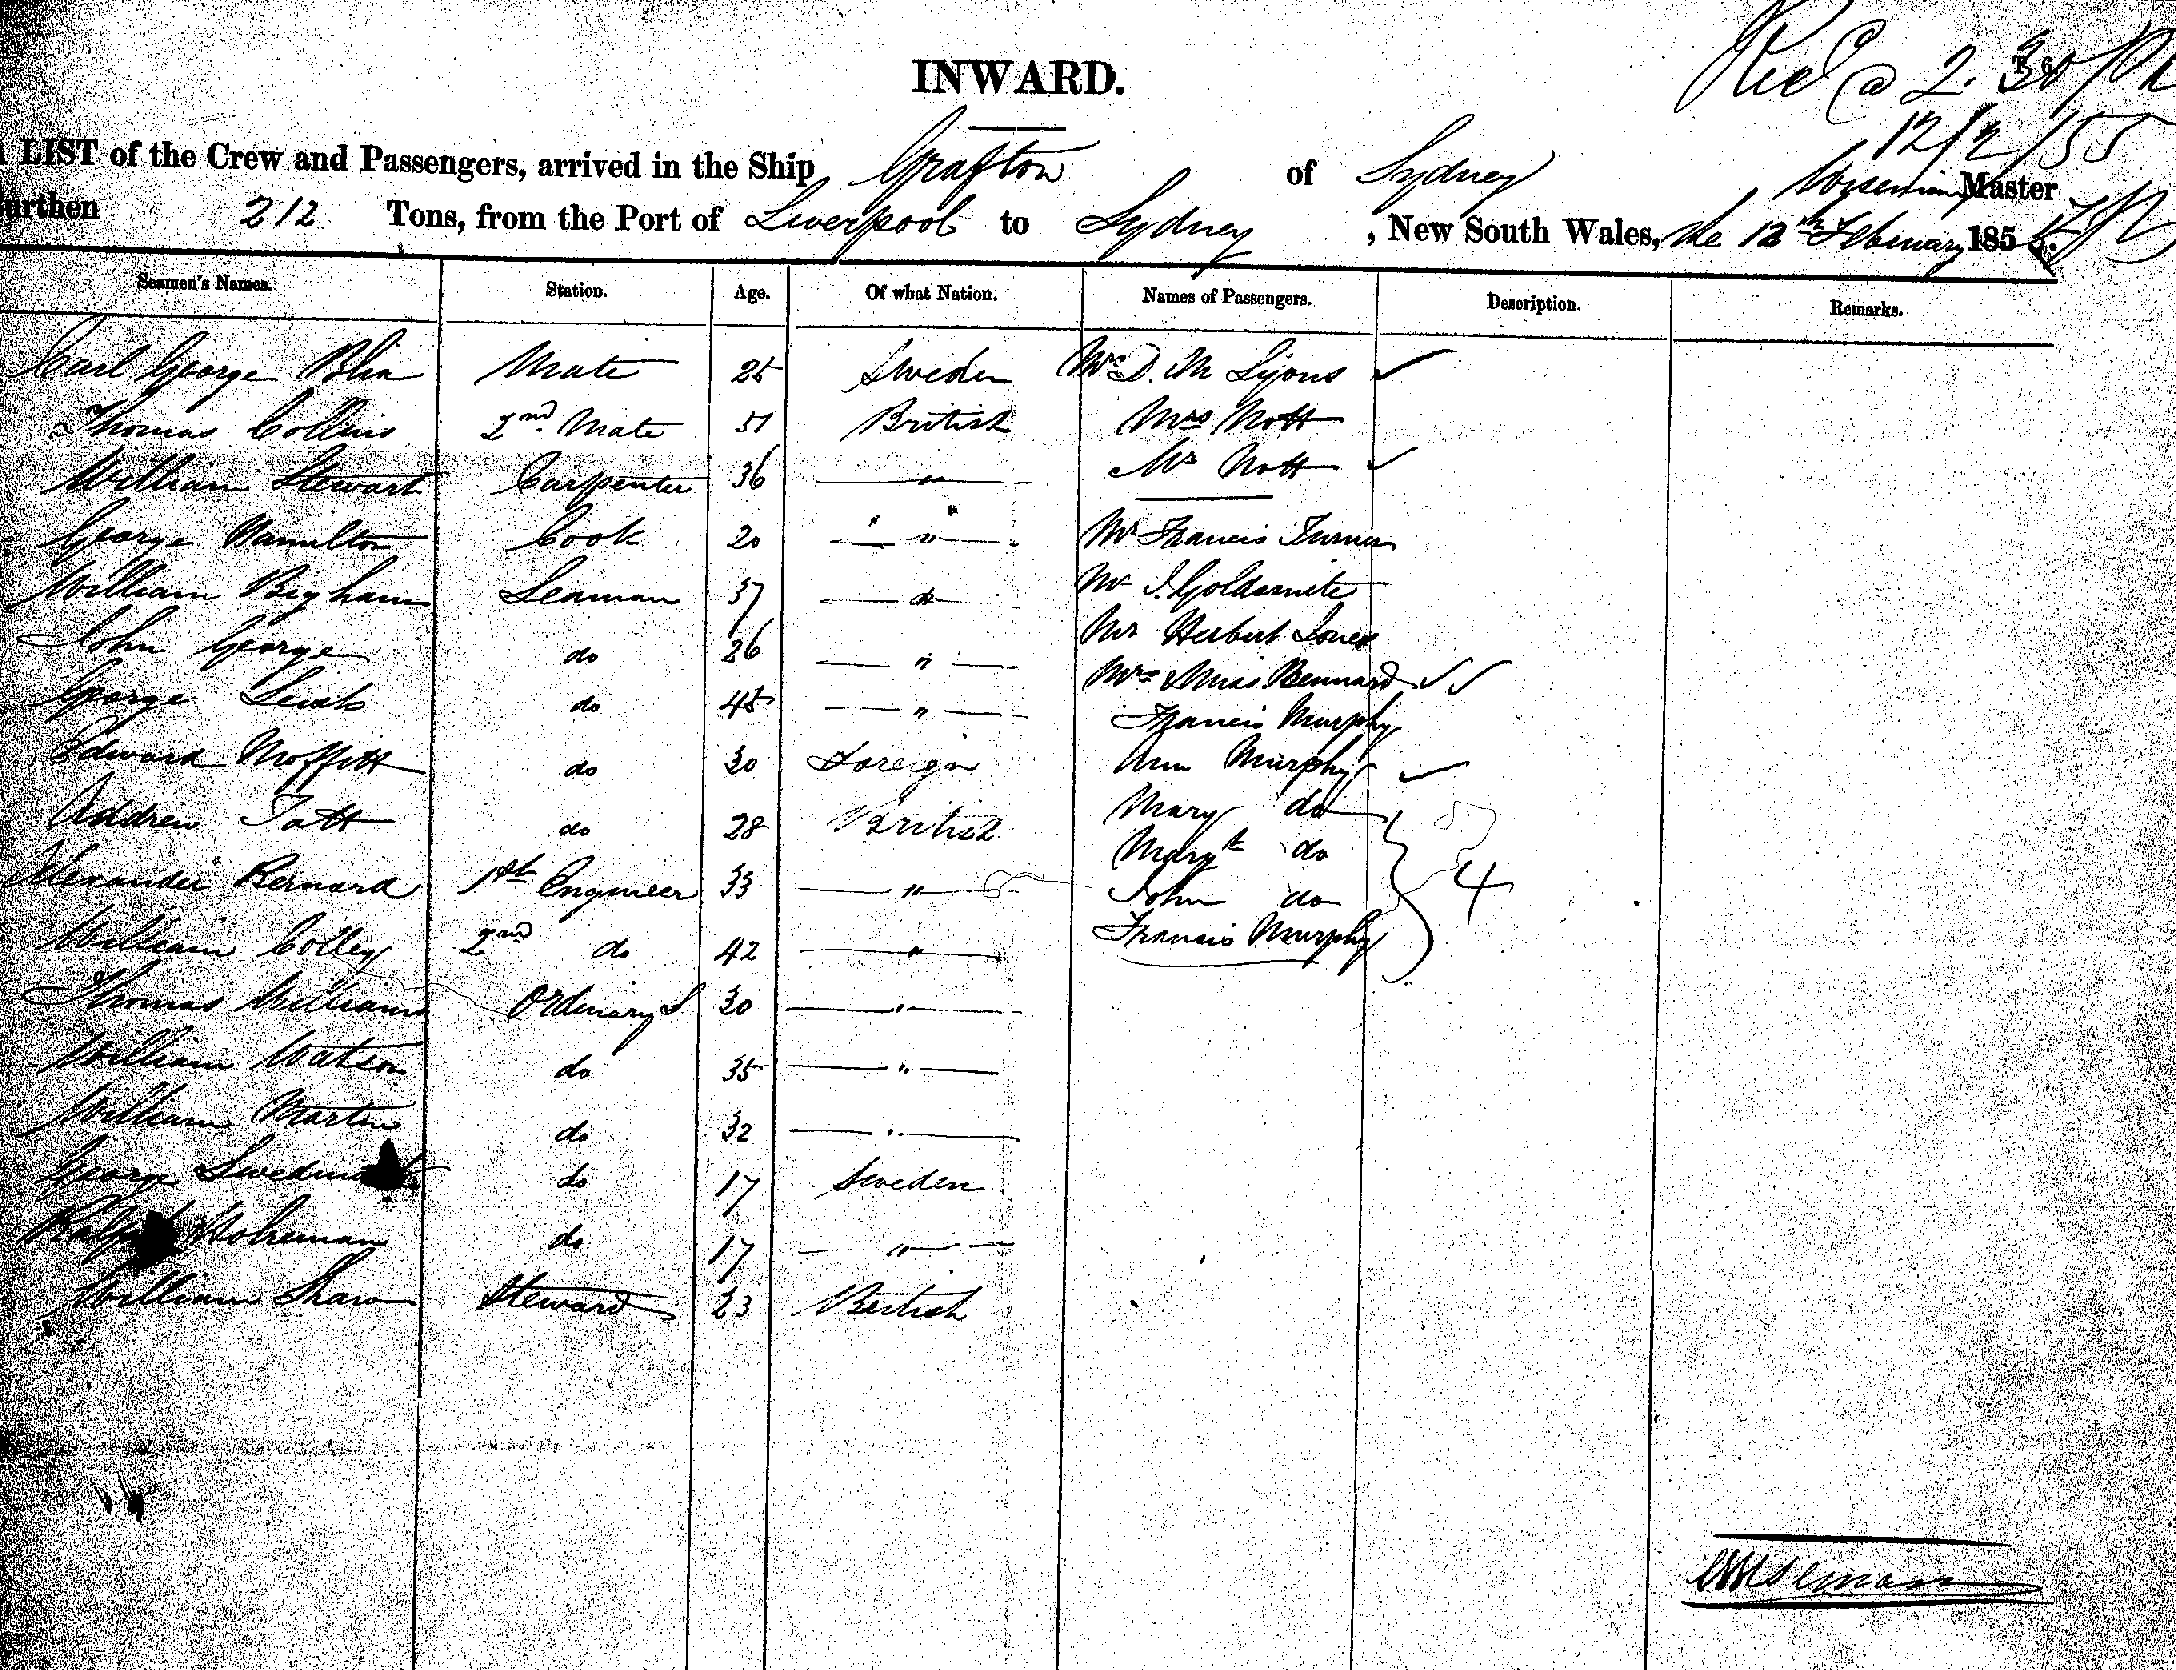 INWARD.
Rec'd @ 2.30 PM
12/2/55
LIST of the Crew and Passengers, arrived in the Ship Grafton of Sydney Wiseman Master
urthen 212 Tons, from the Port of Liverpool to Sydney, New South Wales, the 12th February 1855.
Seamen's Names. Station. Age. Of what Nation. Names of Passengers. Description. Remarks.
Carl George Blin Mate 25 Sweden Mrs D. M Lyons ✓
Thomas Collins 2nd Mate 51 British Mrs Nott
William Stewart Carpenter 36 — " — Mr Nott ✓
George Hamilton Cook 20 — " — Mr Francis Turner
William Bigham Seaman 37 — do — Mr J. Goldsmite
John George do 26 — " — Mr Herbert Jones
George Lewis do 45 — " — Mrs Miss Bennard ✓ ✓
Edward Moffitt do 30 Foreign Francis Murphy
Ann Murphy ✓
Andrew Tatt do 28 British Mary do
Margt do
Alexander Bernard 1st Engineer 33 — " — John do 4
William Colley 2nd do 42 — " — Francis Murphy
Thomas Williams Ordinary S 30 — " —
William Watson do 35 — " —
William Martin do 32 — " —
George do 17 Sweden
Ralph Holmeman do 17 — " —
William Shaw Steward 23 British
C Wiseman